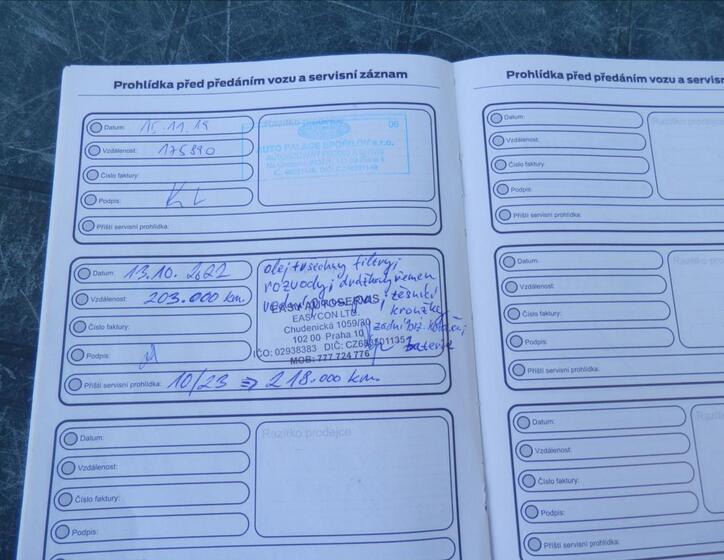 Prohlídka před předáním vozu a servisní záznam
Datum: 15.11.19
Vzdálenost: 175890
Číslo faktury:
Podpis: KL
Příští servisní prohlídka:
06
AUTO PALACE SPOŘILOV s.r.o.
Datum: 13.10.2022
Vzdálenost: 203.000 km.
Číslo faktury:
Podpis:
Příští servisní prohlídka: 10/23 => 218.000 km.
olej + všechny filtry,
rozvody, drážkový řemen
těsnící
kroužky
baterie
EASY AUTOSERVIS
EASYCON LTD.
Chudenická 1059/30
102 00 Praha 10
IČO: 02938383 DIČ:
MOB: 777 724 776
Datum:
Vzdálenost:
Číslo faktury:
Podpis:
Razítko prodejce
Prohlídka před předáním vozu a servisn
Datum:
Vzdálenost:
Číslo faktury:
Podpis:
Příští servisní prohlídka:
Razítko prodejce
Datum:
Vzdálenost:
Číslo faktury:
Podpis:
Příští servisní prohlídka:
Datum:
Vzdálenost:
Číslo faktury:
Podpis:
Příští servisní prohlídka: